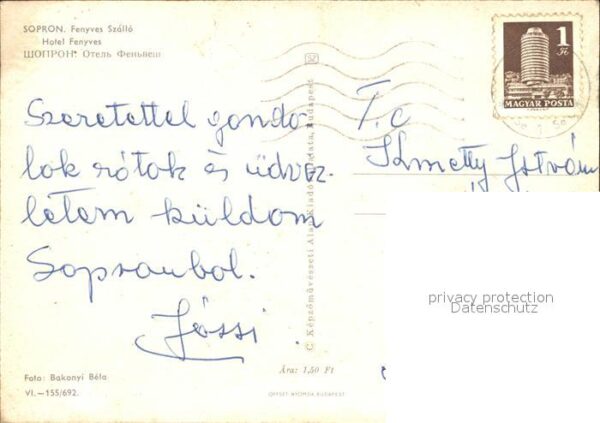 SOPRON. Fenyves Szálló
Hotel Fenyves
ШОПРОН: Отель Феньвеш
Szeretettel gondo-
lok rótok és üdvez-
letem küldom
Sopronbol.
Jóssi
Foto: Bakonyi Béla
VI.—155/692.
© Képzőművészeti Alap Kiadóvállalata, Budapest
Ára: 1,50 Ft
OFFSET NYOMDA BUDAPEST
1 Ft
MAGYAR POSTA
T. c
Kmetty István
privacy protection
Datenschutz